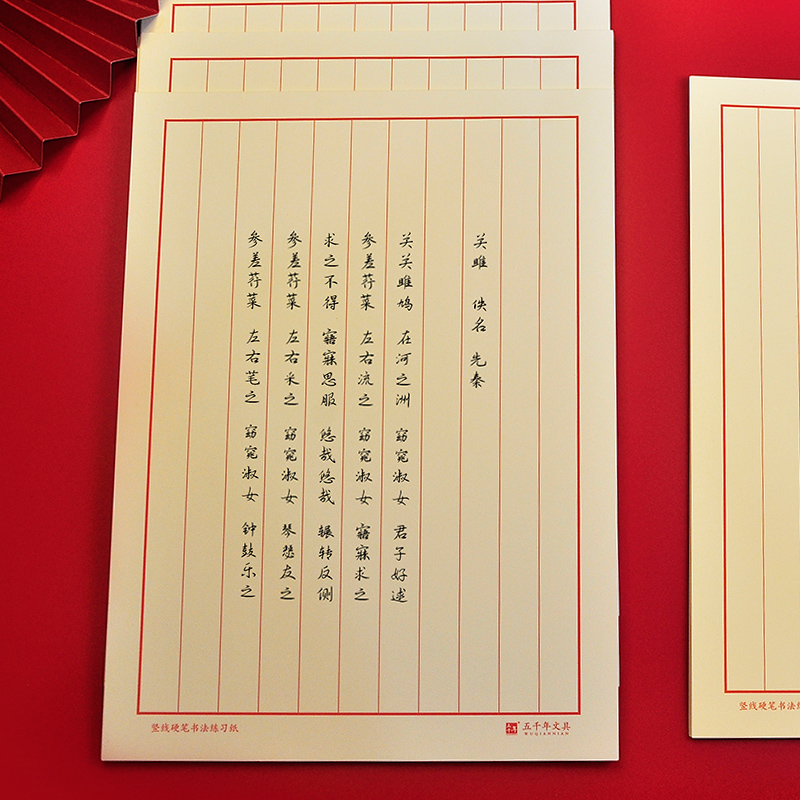 关雎 佚名 先秦
关关雎鸠 在河之洲 窈窕淑女 君子好逑
参差荇菜 左右流之 窈窕淑女 寤寐求之
求之不得 寤寐思服 悠哉悠哉 辗转反侧
参差荇菜 左右采之 窈窕淑女 琴瑟友之
参差荇菜 左右芼之 窈窕淑女 钟鼓乐之
竖线硬笔书法练习纸
五千年文具
WUQIANNIAN
竖线硬笔书法